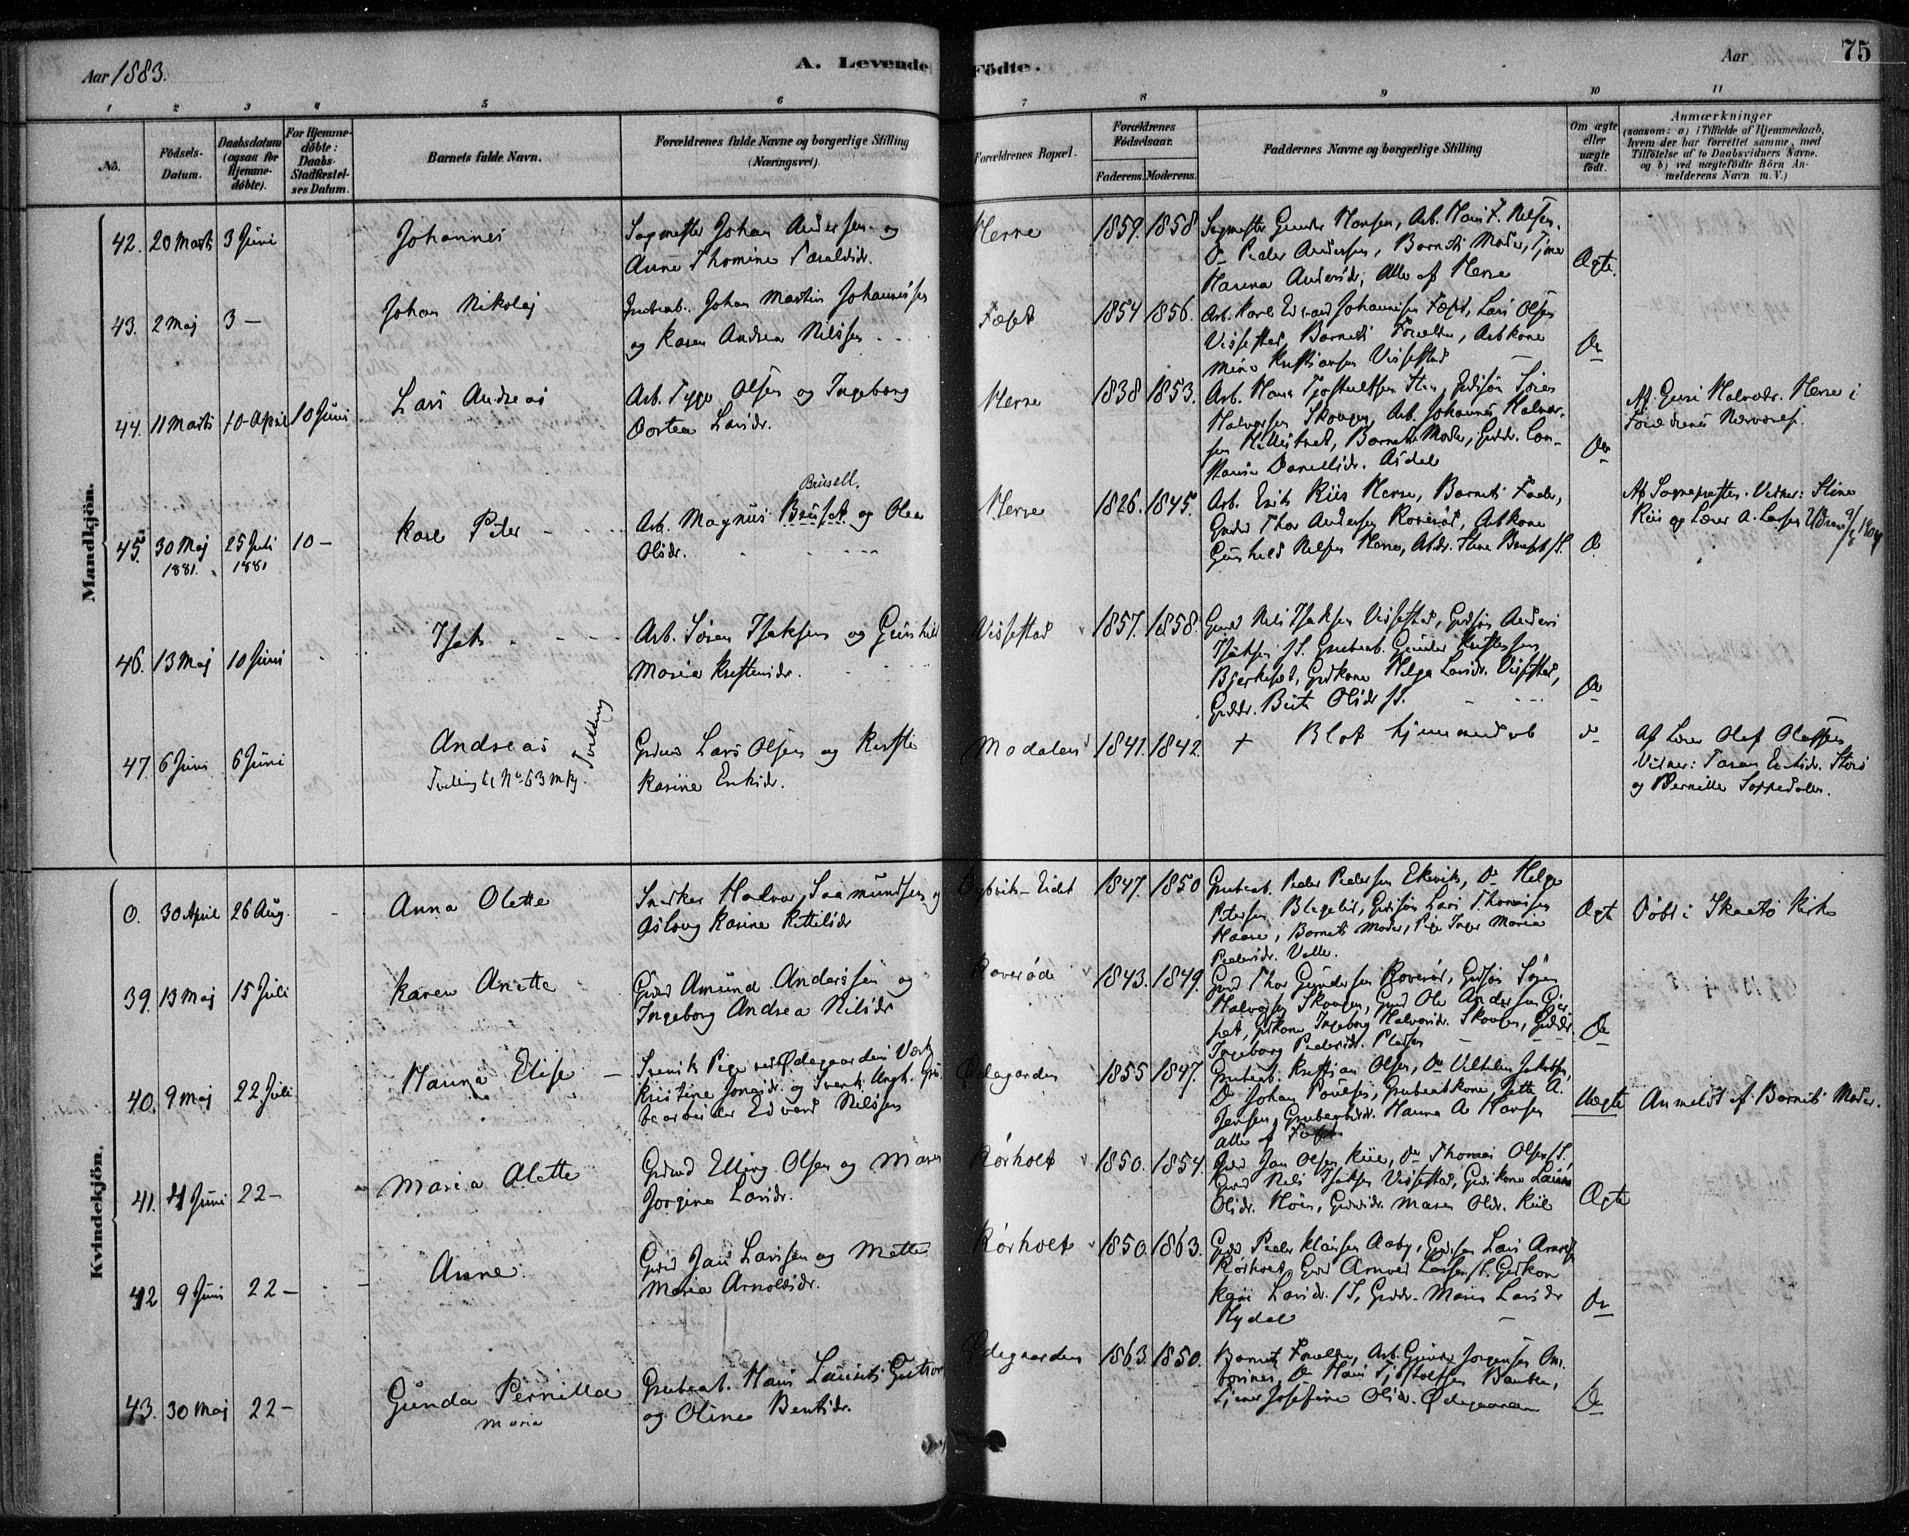 Aar 1883.
A. Levende Födte.
Aar
75
1 2 3 4 5 6 7 8 9 10 11
No.
Födsels-Datum.
Daabsdatum (ogsaa for Hjemme-döbte).
For Hjemme-döbte: Daabs-Stadfæstel-ses Datum.
Barnets fulde Navn.
Forældrenes fulde Navne og borgerlige Stilling (Næringsvei).
Forældrenes Bopæl.
Forældrenes Födselsaar.
Faderens. Moderens.
Faddernes Navne og borgerlige Stilling
Om ægte eller uægte födt.
Anmærkninger
(saasom: a) i Tilfælde af Hjemmedaab, hvem der har forrettet samme, med Tilföielse af to Daabsvidners Navne. og b) ved uægtefödte Börn An-melderens Navn m. V.)
Mandkjön.
42. 20 Marts 3 Juni
Johannes
Sagmester Johan Andersen og
Anne Thomine
Herre
1859. 1858
Sagmester Gunder Hansen, Arb. Hans F. Nilsen.
Do Peder Andersen, Barnets Moder, Tjener
Hanna Andersdr, Alle af Herre
Ægte.
43. 2 Maj 3 —
Johan Nikolaj
Grubearb. Johan Martin Johannessen
og Karen Andrea Nilssen
1854 1856.
Arb. Karl Edvard Johannessen Lars Olsen
Vissestad, Barnets Forældre, Arbkone
Kristiansen Vissestad
Do
44. 11 Marts 10-April 10 Juni
Lars Andreas
Arb. Tygge Olsen og Ingeborg
Dortea Larsdr.
Herre
1838 1853.
Arb. Hans Gdsøn Søren
Halvorsen Skougen, Arb. Johannes Halvor-
sen Barnets Moder, Gddr. Con-
stanse Danielsdr. Asdal
Do
Af Guri Halvordr. Herre i
Forældrenes Nærværelse.
45. 30 Maj 25 Juli 10 —
1881. 1881
Karl Peter
Brusell.
Arb. Magnus og Olea
Olsdr.
Herre
1826. 1845.
Arb. Erik Riis Herre, Barnets Fader,
Gmd Thor Andersen Roverød, Arbkone
Gunhild Nilsen Herre, Arbdr. Stine
Do
Af Sognepresten. Vidner: Stine
Riis og Lærer A. Larsen
46. 13 Maj 10 Juni
Isak
Arb. Søren Isaksen og Gunhild
Maria Kristensdr.
Vissestad
1857. 1858
Gmd Nils Isaksen Vissestad, Gdsøn Anders
Isaksen /S. Grubearb. Gunder Kristensen
Bjerkeset, Gdkone Helga Larsdr. Vissestad,
Gddr. Berte Olsdr /S.
Do
47. 6 Juni 6 Juni
Andreas
Tvilling til No 53
Tvilling
Gdmd Lars Olsen og Kirsti
Karine Eriksdr.
Modalen
1841. 1842.
+ Blot hjemmedøb
do
Af Lærer Olaf Olafsen
Vidner: Taran Eriksdr.
og Pernille
Kvindekjön.
0. 30 April 26 Aug.
Anna Olette
Snedker Halvor Saamundsen og
Aslaug Karine Kittilsdr
1847. 1850
Grubearb. Peder Pedersen Ekevik, Do Helge
Petersen Gdsøn Lars Thomassen
Haave, Barnets Moder, Pige Inger Maria
Pedersdr. Valle.
Ægte
Døbt i Skaatø Kirke
39. 13 Maj 15 Juli
Karen Anette
Gmd Amund Anderssen og
Ingeborg Andrea Nilsdr
Roverød
1843. 1849.
Gmd Thor Gundersen Roverød, Gdsøn Søren
Halvorsen Skougen, Gmd Ole Andersen
Gdkone Ingeborg Halvorsdr. Skougen, Gddr.
Ingeborg Pedersdr. Plassen
Do
40. 9 Maj 22 Juli
Hanna Elise —
Svensk Pige ved Ødegaardens Værk
Kristine Jonasdr. og Svensk Gru-
bearbeider Edvard Nilssen
Ødegarden
1855 1847.
Grubearb. Kristian Olsen, Do Vilhelm Jakobsen,
Do Johan Grubearbkone Jette A.
Jensen, Hanna A. Hansen
Alle af
Uægte
Anmeldt af Barnets Moder.
41. 4 Juni 22 —
Maria Alette
Gdmd Elling Olsen og Maren
Jorgine Larsdr.
Rørholt
1850. 1854.
Gmd Jan Olsen Kiil, Do Thomas Olsen /S,
Gmd Nils Isaksen Vissestad, Gdkone
Olsdr. Gmdsdr. Maren Olsdr. Kiil
Ægte
42 9 Juni 22 —
Anne
Gmd Jans Larssen og Mette
Maria Arnoldsdr.
Rørholt
1850. 1863.
Gmd. Peder Klausen Aaby, Gdsøn Lars
Rørholt, Gmd Larsen /S. Gdkone
Kari Larsdr. /S, Gddr. Maren Larsdr
Nydal
Do
43. 30 Maj 22 —
Gunda Pernille
Maria
Grubearb. Hans Laurits
og Oline Bentsdr.
Ødegaarden
1863. 1850.
Barnets Forældre, Arb. Gunder Jørgensen
Do Hans
Tjener Josefine Olsdr. Ødegaarden
Do